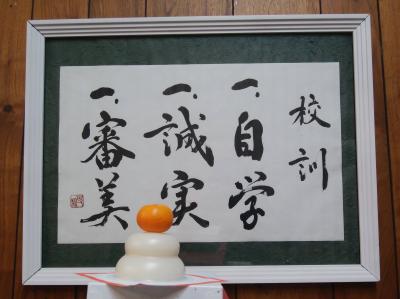 校訓
一、自学
一、誠実
一、審美